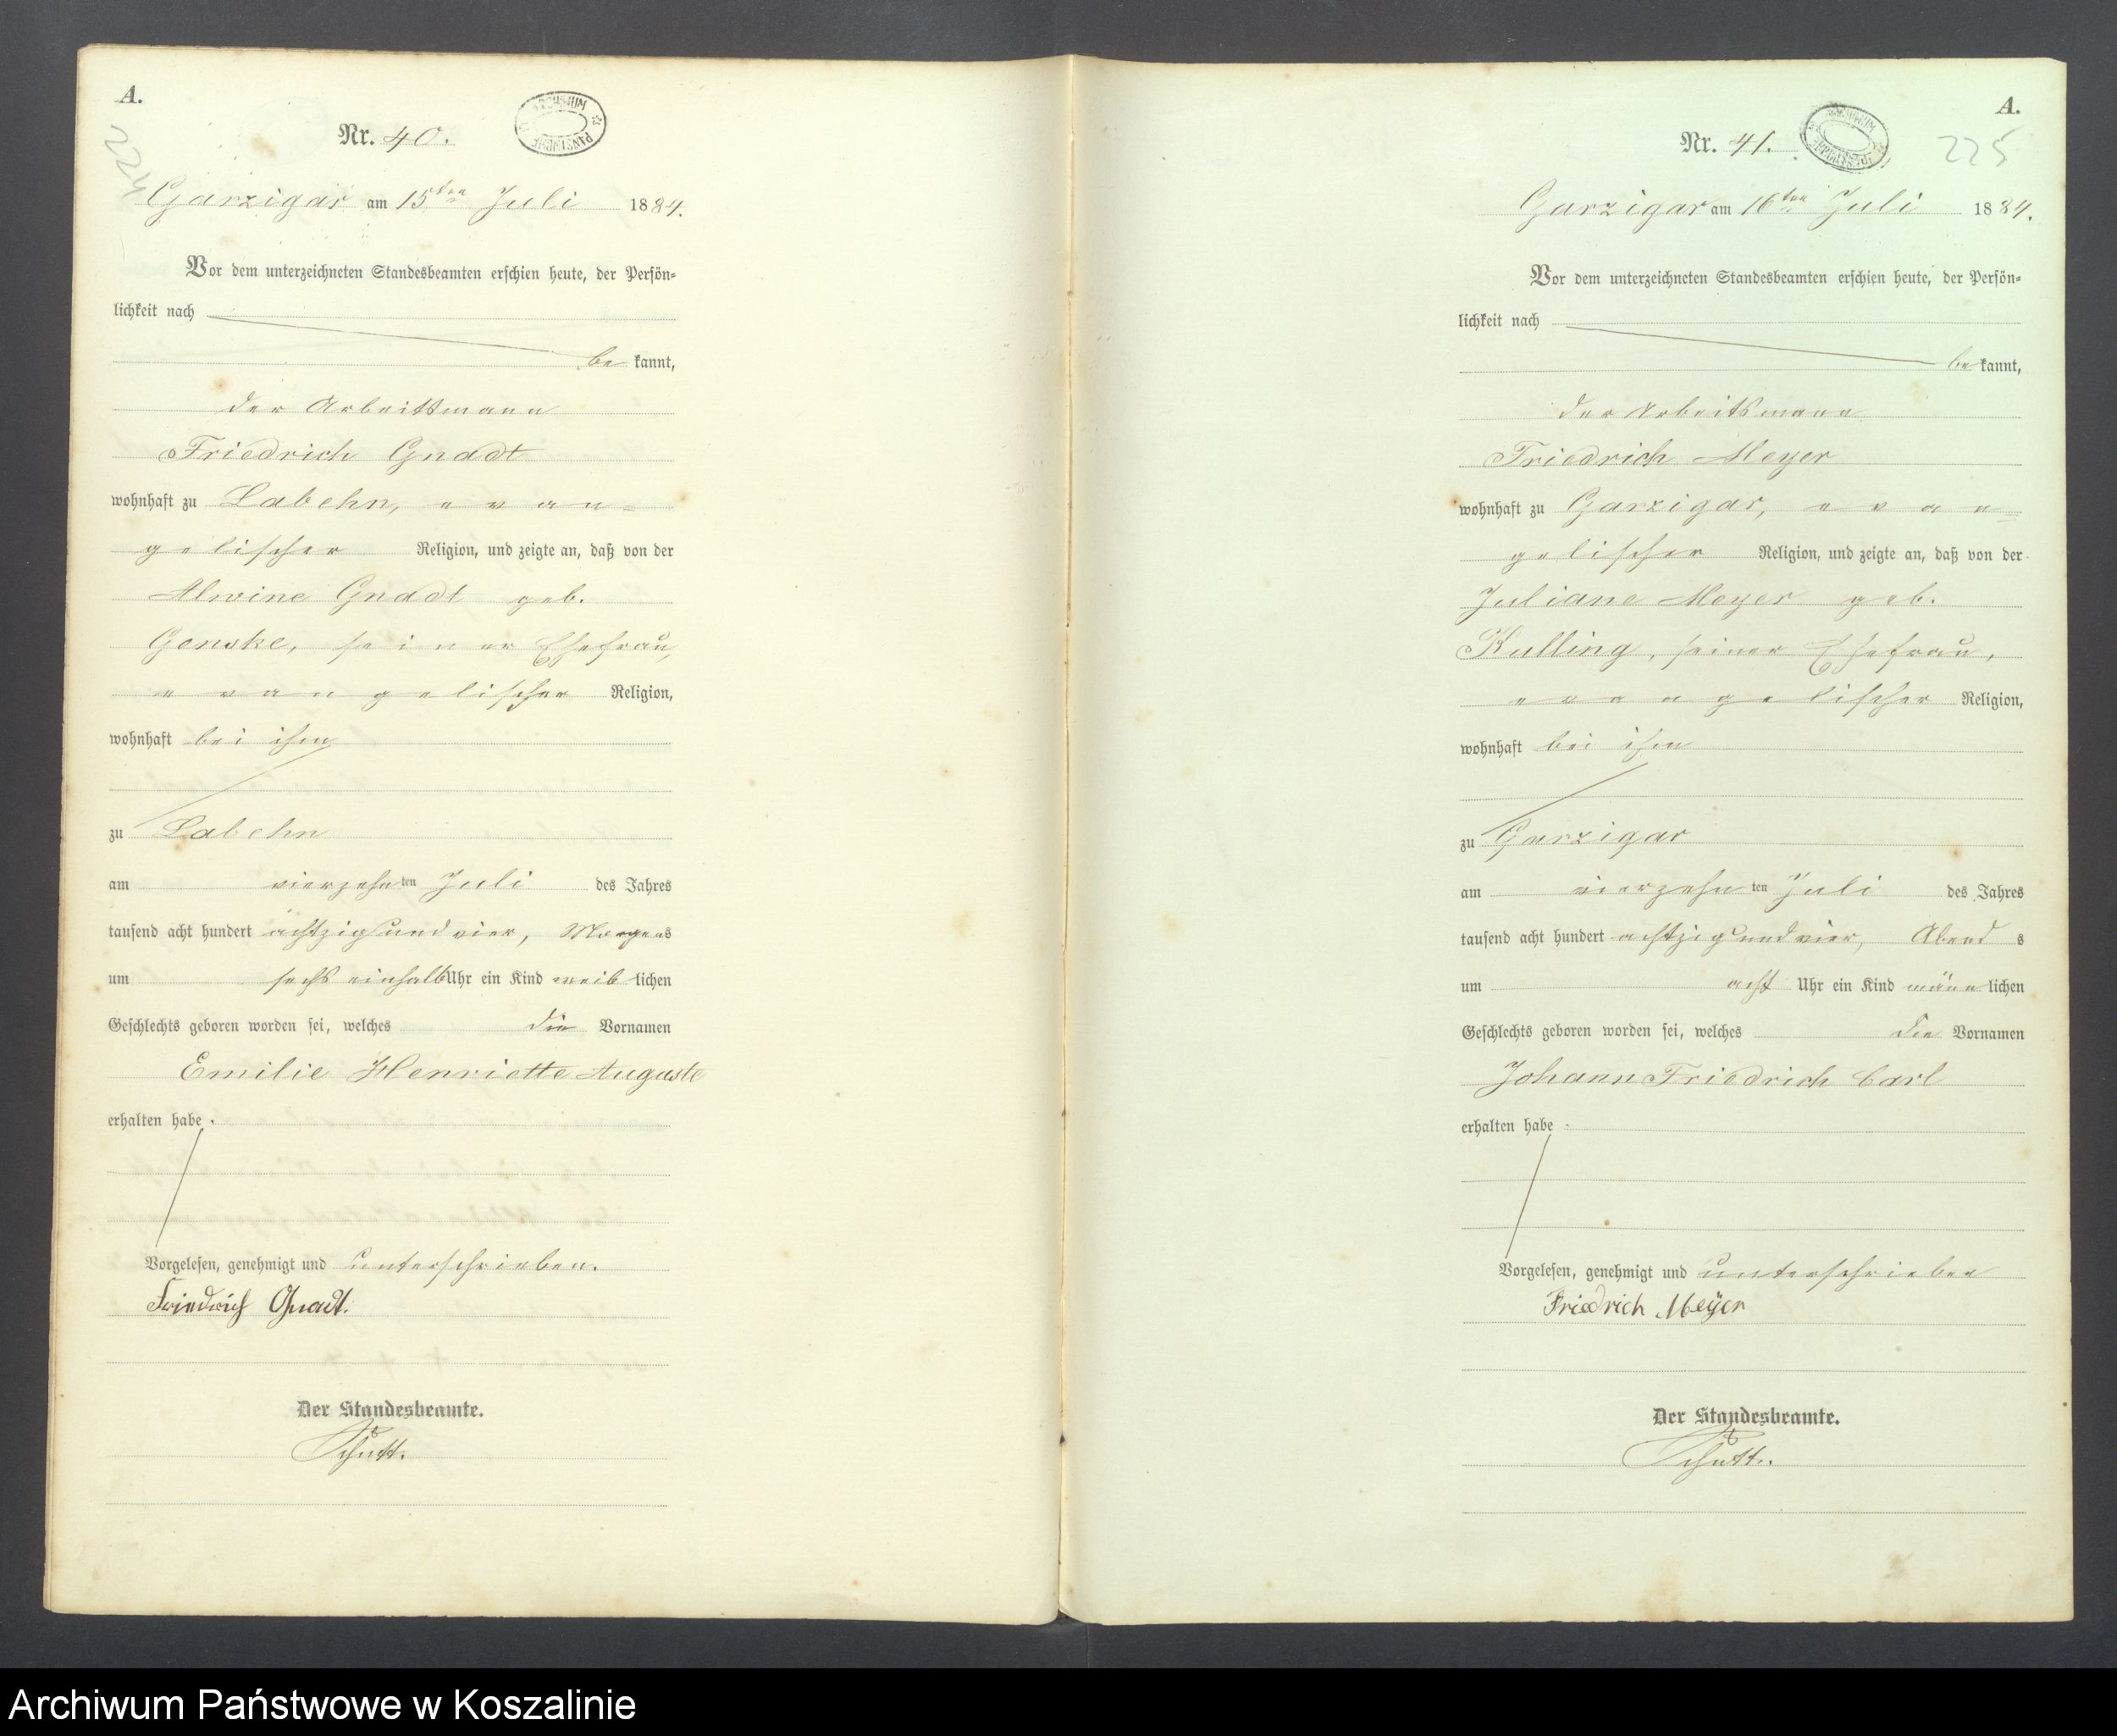 A.
224
Nr. 40.
Garzigar am 15ten Juli 1884.
Vor dem unterzeichneten Standesbeamten erschien heute, der Persön-
lichkeit nach
be kannt,
der Arbeitsmann
Friedrich Gnadt
wohnhaft zu Labehn, evan-
gelischer Religion, und zeigte an, daß von der
Alwine Gnadt geb.
Genske, seiner Ehefrau,
evangelischer Religion,
wohnhaft bei ihm
zu Labehn
am vierzehnten Juli des Jahres
tausend acht hundert achtzig und vier, Morgens
um sechs einhalb Uhr ein Kind weiblichen
Geschlechts geboren worden sei, welches die Vornamen
Emilie Henriette Auguste
erhalten habe.
Vorgelesen, genehmigt und unterschrieben.
Friedrich Gnadt.
Der Standesbeamte.
Schütt.
A.
225
Nr. 41.
Garzigar am 16ten Juli 1884.
Vor dem unterzeichneten Standesbeamten erschien heute, der Persön-
lichkeit nach
be kannt,
der Arbeitsmann
Friedrich Meyer
wohnhaft zu Garzigar, evan-
gelischer Religion, und zeigte an, daß von der
Juliane Meyer geb.
Kulling, seiner Ehefrau,
evangelischer Religion,
wohnhaft bei ihm
zu Garzigar
am vierzehnten Juli des Jahres
tausend acht hundert achtzig und vier, Abends
um acht Uhr ein Kind männlichen
Geschlechts geboren worden sei, welches die Vornamen
Johann Friedrich Carl
erhalten habe.
Vorgelesen, genehmigt und unterschrieben
Friedrich Meyer
Der Standesbeamte.
Schütt.
Archiwum Państwowe w Koszalinie